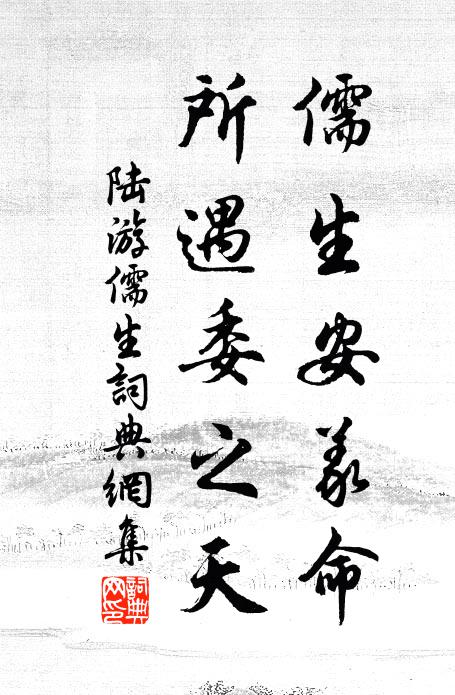 儒生安義命
所遇委之天
陸游儒生詞典網集
詞典網印